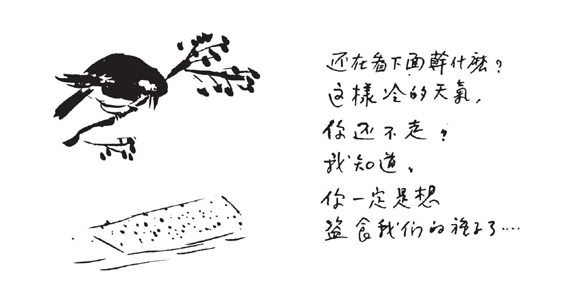 还在看下面幹什麼？
这樣冷的天氣，
你还不走？
我知道、
你一定是想
盗食我们的種子了....